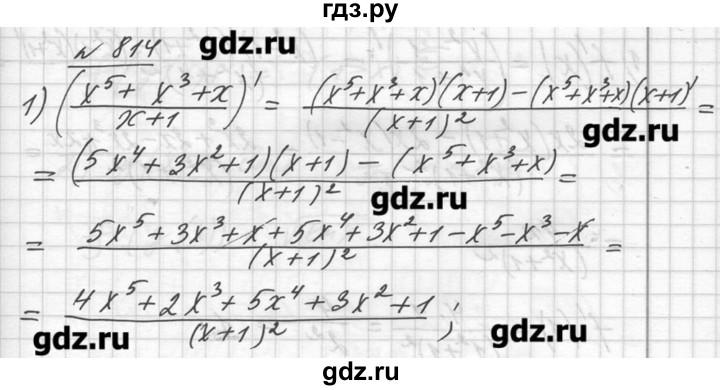 гдз.ру
№ 814
gdz.ru
1) ((x⁵ + x³ + x)/(x+1))' = ((x⁵+x³+x)'(x+1) − (x⁵+x³+x)(x+1)')/(x+1)² =
gdz.ru
= ((5x⁴+3x²+1)(x+1) − (x⁵+x³+x))/(x+1)² =
gdz.ru
= (5x⁵+3x³+x+5x⁴+3x²+1−x⁵−x³−x)/(x+1)² =
= (4x⁵+2x³+5x⁴+3x²+1)/(x+1)² ;
gdz.ru gdz.ru
gdz.ru